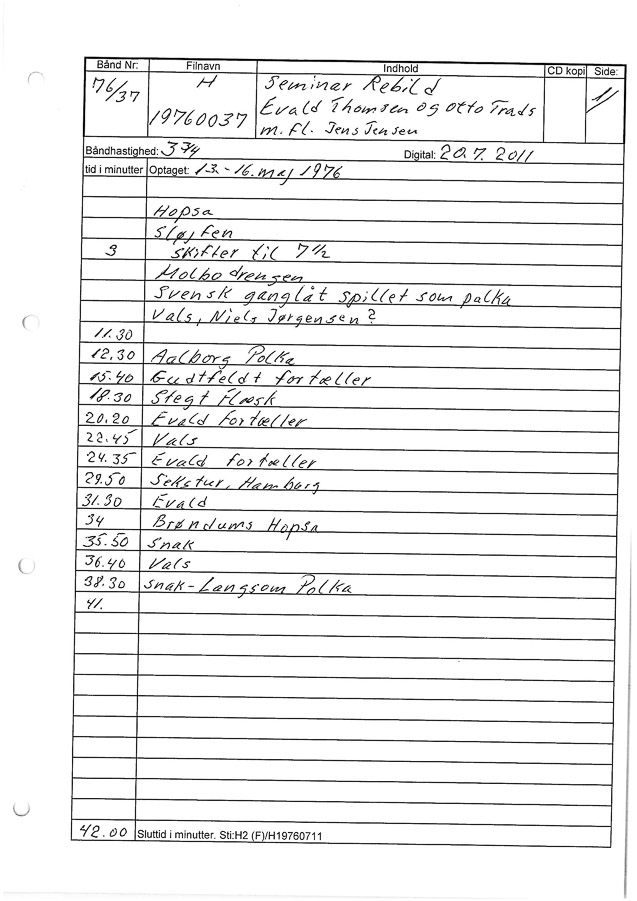 Bånd Nr: Filnavn Indhold CD kopi Side:
76/37 H Seminar Rebild 1/
19760037 Evald Thomsen og Otto Trads
m. fl. Jens Jensen
Båndhastighed: 3 3/4 Digital: 20.7. 2011
tid i minutter Optaget: 13.-16. maj 1976
Hopsa
Sløjfen
3 skifter til 7 1/2
Molbodrengen
Svensk ganglåt spillet som polka
Vals, Niels Jørgensen?
11.30
12.30 Aalborg Polka
15.40 Gudtfeldt fortæller
18.30 Stegt Flæsk
20.20 Evald fortæller
22.45 Vals
24.35 Evald fortæller
29.50 Sekstur, Hamborg
31.30 Evald
34 Brøndums Hopsa
35.50 Snak
36.40 Vals
38.30 Snak - Langsom Polka
41.
42.00 Sluttid i minutter. Sti:H2 (F)/H19760711